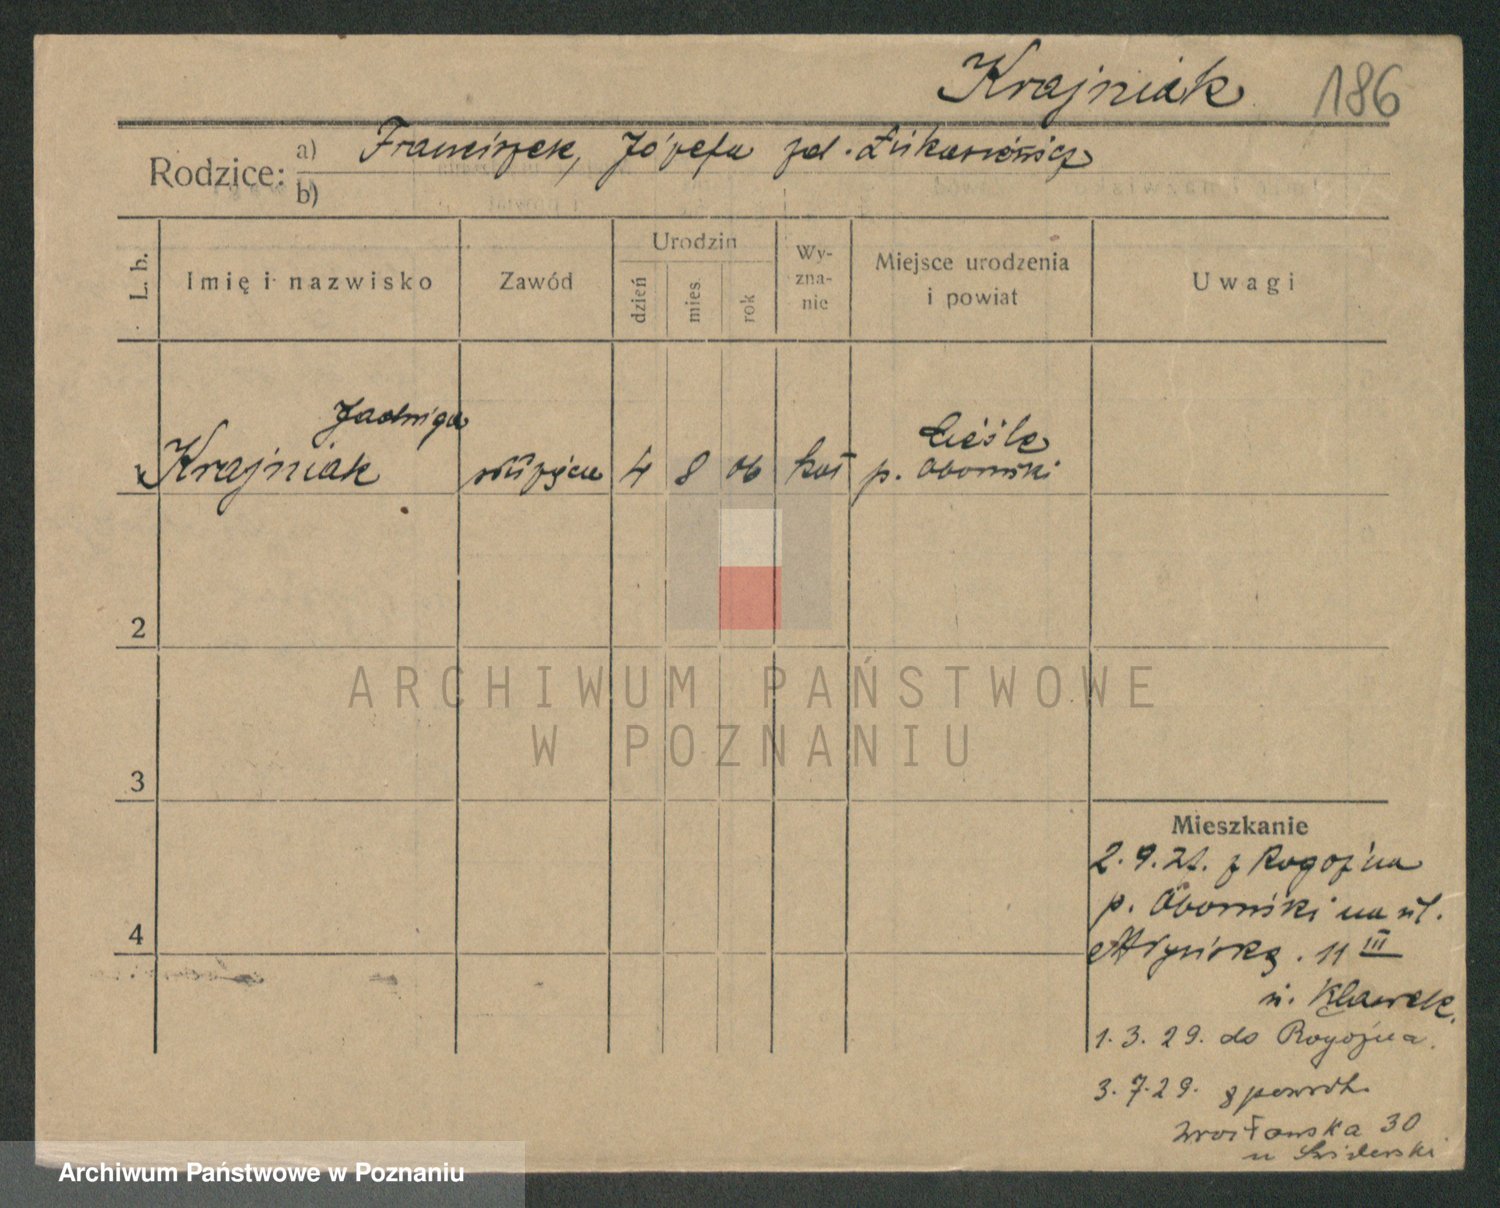 Krajniak 186
Rodzice: a) Franciszek, Józefa zd. Łukasiewicz
b)
L. b. Imię i nazwisko Zawód Urodzin dzień mies. rok Wy-
zna-
nie Miejsce urodzenia
i powiat Uwagi
Jadwiga
Krajniak służąca 4 8 06 kat Cieśle
p. Obornicki
2
3
4
ARCHIWUM PAŃSTWOWE
W POZNANIU
Mieszkanie
2. 9. 21. z Rogoźna
p. Obornicki na ul.
11 III
u.
1. 3. 29. do Rogoźna.
3. 7. 29. z powrót.
Wrocławska 30
u Świderski
Archiwum Państwowe w Poznaniu